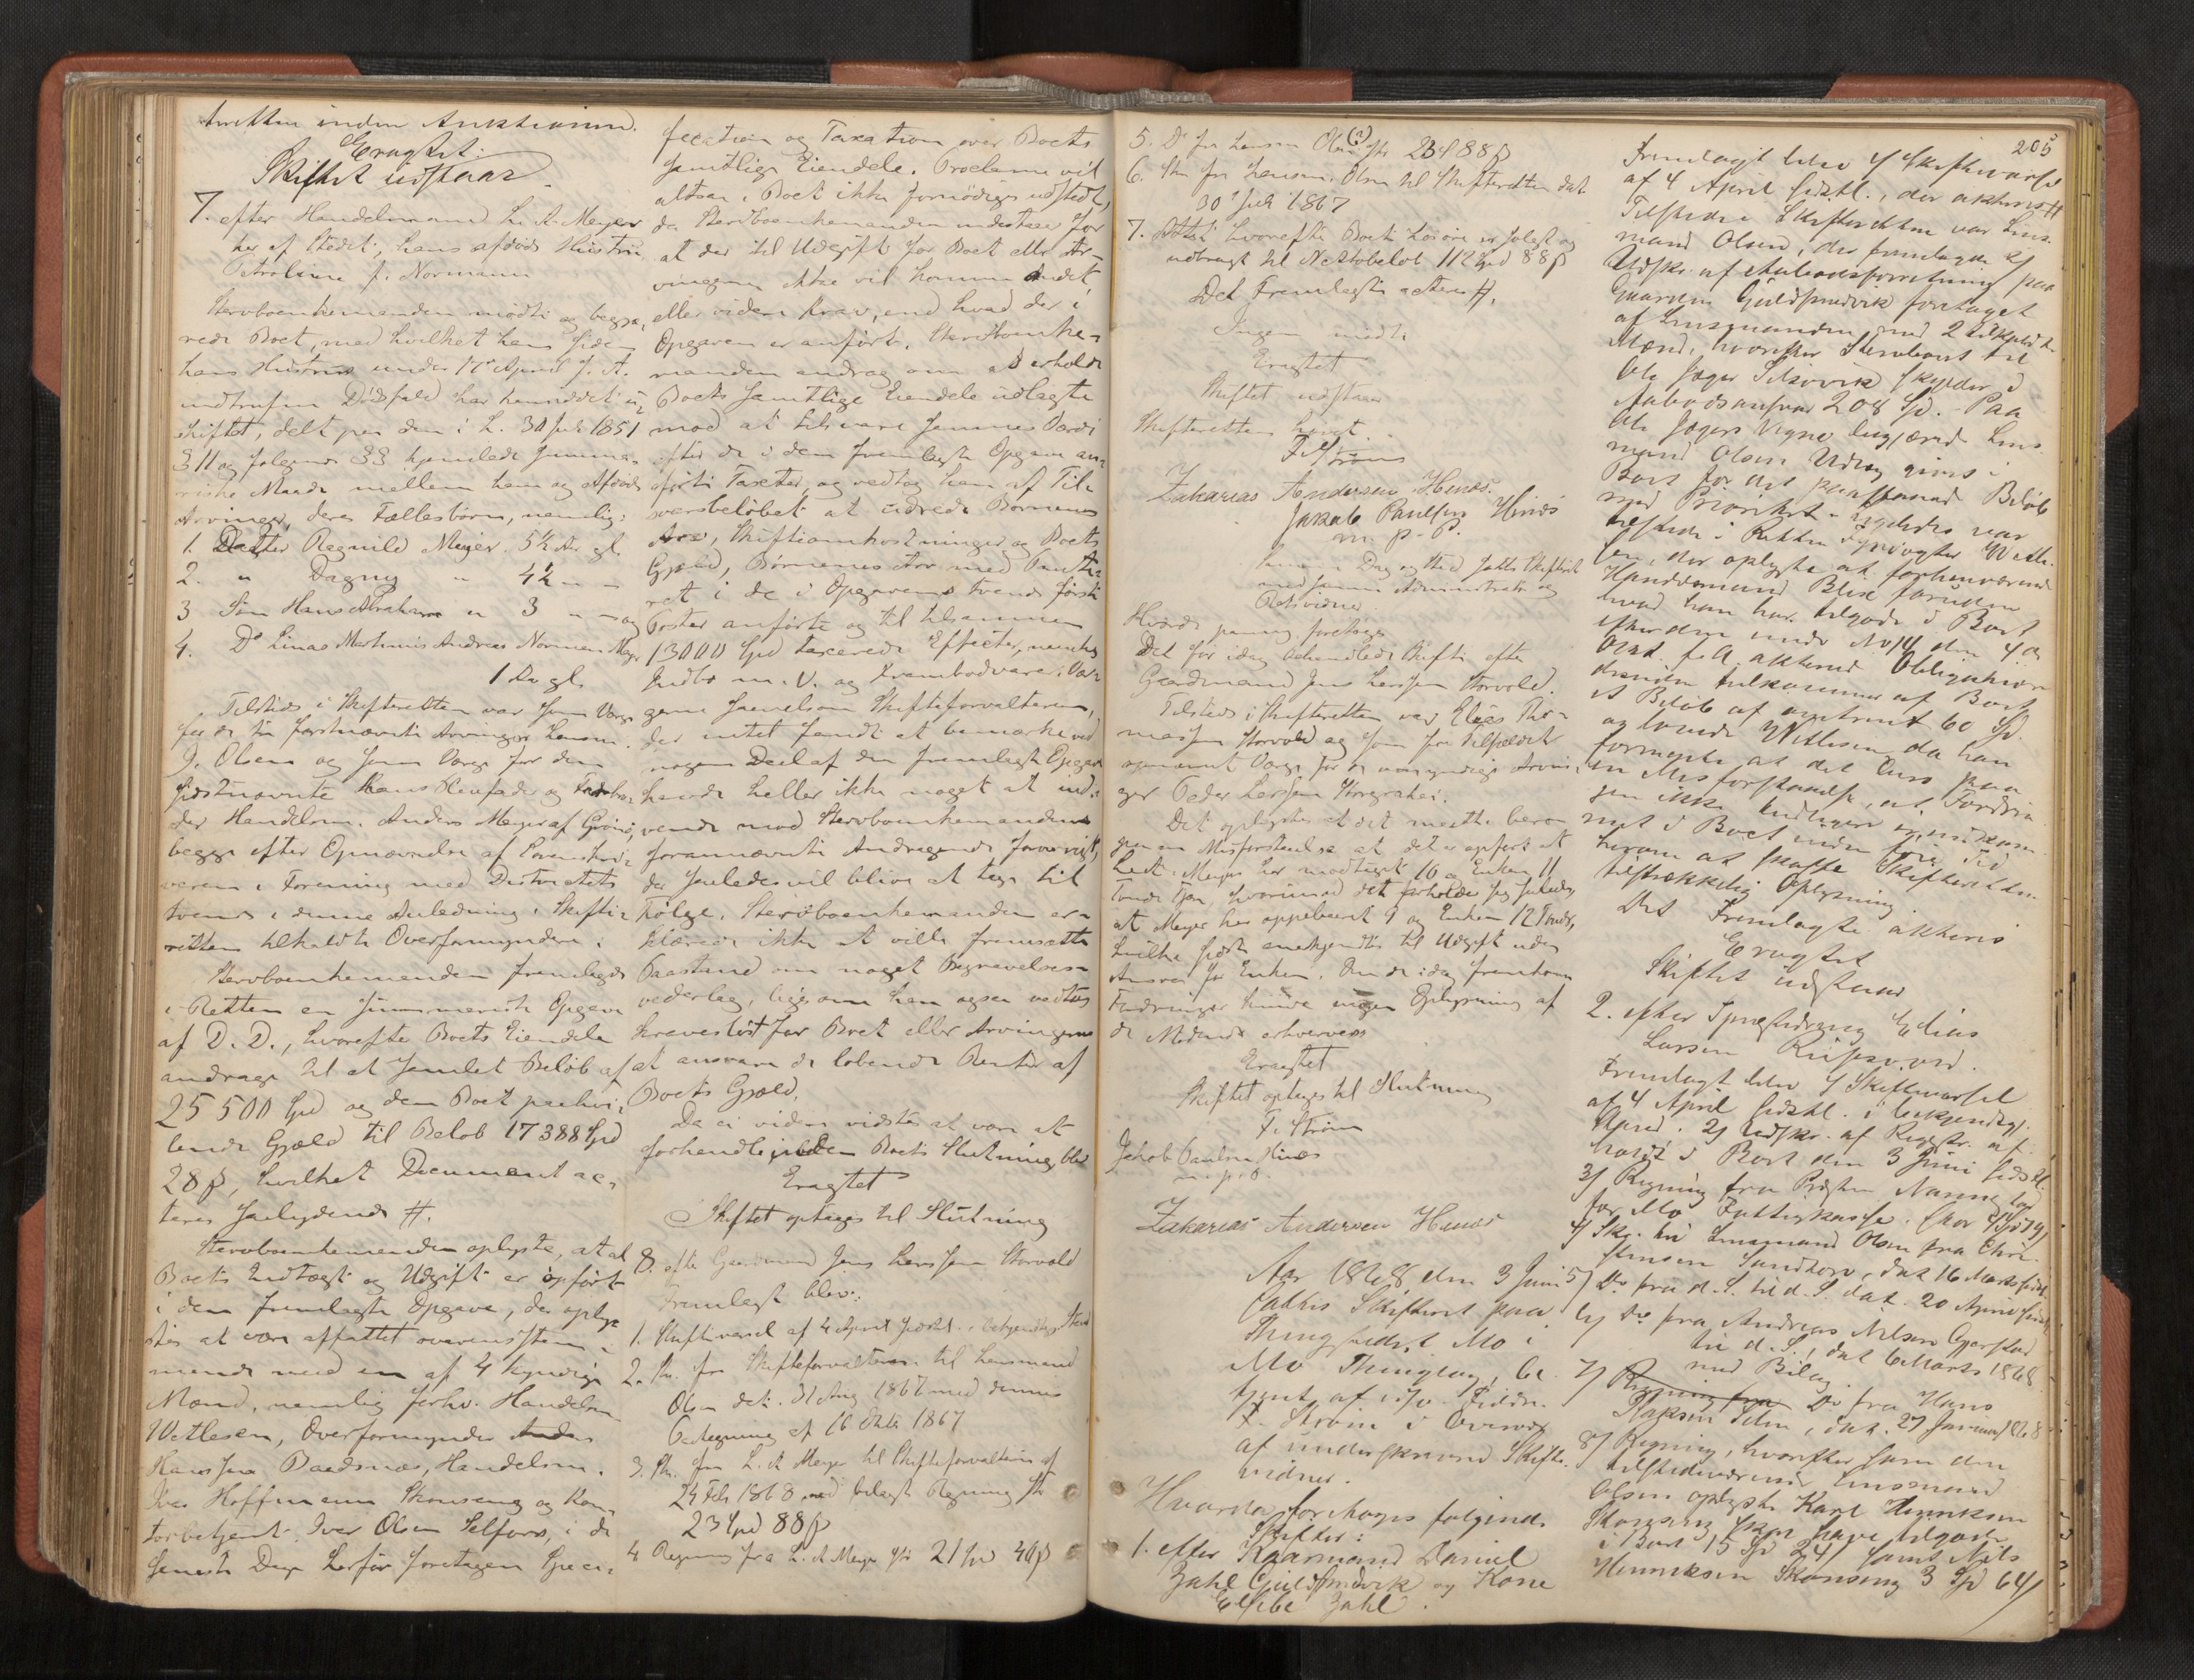 inden Auktionen.
Eragtet:
Skiftet udstaar
7. efter Handelsmand L. A. Meyer
her af Stedet, hans afdøde Hustru
Petroline f. Normann
Stervboenkemanden mødte og begjæ-
rede Boet, med hvilket hans siden
hans Hustrus under 17de April f. A.
indtrufne Dødsfald har henseddet i u-
skiftet, delt paa den i L. 30 Juli 1851
§ 11 og følgende §§ hjemlede summa-
riske Maade mellem ham og Afdødes
Arvinger, deres Fællesbørn, nemlig:
1. Datter Regnild Meyer 5½ Aar gl.
2. " Dagny " 4½ " "
3 Søn Hans Abraham " 3 " " og
4. Do Linas Martinus Andreas Normann Meyer
1 Aar gl.
Tilstede i Skifteretten var som Værge
for de tre førstnævnte Arvinger Lensm.
J. Olsen og som Værge for den
sidstnævnte hans og Farbro-
der Handelsm. Anders Meyer af Grønø,
begge efter Opnævnelse af
i Forening med Distriktets
tvende i denne Anledning i Skifte-
retten tilkaldte Overformyndere.
Stervboenkemanden fremlagde
i Retten en summarisk Opgave
af D. D., hvorefter Boets Eiendele
andrage til et samlet Beløb af
25500 Spd og den Boet paahvi-
lende Gjæld til Beløb 17388 Spd
28 ß, hvilket Document ac-
teres saalydende #.
Stervboenkemanden oplyste, at al
Boets Indtægt og Udgift er opført
i den fremlagte Opgave, der oply-
stes at være affattet overensstem-
mende med en af 4 kyndige
Mænd, nemlig forhv. Handelsm
Wetlesen, Overformynder
Hans Jna Baadsnæs, Handelsm.
Iver Hoffmann Skonseng og Kon-
torbetjent Iver Olsen Selfors, i de
seneste Dage herfør foretagen Speci-
fication og Taxation over Boets
samtlige Eiendele. Proclama vil
altsaa i Boet ikke fornødiges udstedt,
da Stervboenkemanden indestaar for
at der til Udgift for Boet eller Ar-
vingerne ikke vil komme Andet
eller videre Krav, end hvad der i
Opgaven er anført. Stervboenke-
manden androg om at erholde
Boets samtlige Eiendele udlagte
mod at tilsvare sammes Værdi
efter de i den fremlagte Opgave an-
førte Taxter, og vedtog han af Til-
svarsbeløbet at udrede Børnenes
Arv, Skifteomkostninger og Boets
Gjæld, Børnenes Arv med Pante-
ret i de i Opgavens tvende første
Poster anførte og til tilsammen
13000 Spd taxerede Effecter, nemlig
Indbo m. V. og Krambodvare. Vær-
gerne saavelsom Skifteforvalteren,
der intet fandt at bemærke ved
nogen Deel af den fremlagte Opgave
havde heller ikke noget at ind-
vende mod Stervboenkemandens
forannævnte Andragende forøvrigt,
der saaledes vil blive at tage til
Følge. Stervboenkemanden er-
klærede ikke at ville fremsætte
Paastand om noget Begravelses-
vederlag, ligesom han ogsaa vedtog
kravesløst for Boet eller Arvingerne
at ansvare de løbende Renter af
Boets Gjæld.
Da ei videre vidstes at være at
forhandle inden Boets Slutning, blev
Eragtet
Skiftet optages til Slutning
8. efter Gaardmand Jens Larssen Storvold
Fremlagt blev:
1. Skiftevarsel af 4 April sidstl. i bekjendtgj. Stand
2. Skr. fra Skifteforvalteren til Lensmand
Olsen dat. 31 Aug 1867 med dennes
Paategning af 16 Oktbr 1867
3. Skr. fra L. A Meyer til Skifteforvalteren af
24 Feb 1868 med bilagt Regning for
23 Spd 88 ß
4 Regning fra L. A Meyer for 21 Spd 40 ß
205
5. Do fra Lensm Olsen (?) for 23 Spd 88 ß
6. Skr fra Lensm. Olsen til Skifteretten dat
30 Juli 1867
7. hvorefter Boets Løsøre er solgt og
udbragt til Nettobeløb 112 Spd 88 ß
Det Fremlagte acteres #.
Ingen mødte
Eragtet
Skiftet udstaar
Skifteretten hævet.
F. Strøm
Zakarias Andersen Hinæs.
Jakob Paulsen Hinæs
m. p. P.
Samme Dag og Sted sattes Skifteret
med samme Administrator og
Retsvidner.
Hvorda paany foretoges
Det før idag behandlede Skifte efter
Gaardmand Jens Larssen Storvold.
Tilstede i Skifteretten var Elias Tho-
massen Storvold og som for Tilfældet
opnævnt Værge for de umyndige Arvin-
ger Peder Larssen
Det oplystes at det maatte bero
paa en Misforstaaelse at det er opført at
Ludv. Meyer har modtaget 10 og Enken 11
Tønder Tjære, hvorimod det forholder sig saaledes
at Meyer har oppebaaret 9 og Enken 12 Tønder,
hvilke sidste anerkjendtes til Udgift uden
Ansvar for Enken. Om de idag fremkomne
Fordringer kunde ingen Oplysning af
de Mødende erhverves
Eragtet
Skiftet optages til Slutning
F. Strøm
Jakob Paulsen Hinæs
m. p. P.
Zakarias Andersen Hinæs
Aar 1868 den 3 Juni
sattes Skifteret paa
Thingstedet Mo i
Mo Thinglag, be-
tjent af
F. Strøm i Overvær
af underskrevne Skifte-
vidner.
Hvorda foretoges følgende
Skifter:
1. efter Kaarmand Daniel
Zahl Guldsmedvik og Kone
Elsebe Zahl.
Fremlagt blev 1/ Skiftevarsel
af 4 April sidstl., der akteres #
Tilstede i Skifteretten var Lens-
mand Olsen, der fremlagde 2/
Udskr. af Aabodsforretning paa
Gaarden Guldsmedvik foretaget
af Lensmanden med 2 tilkaldte
Mænd, hvorefter Stervboet til
Ole Jæger Selsøvik skylder i
Aabodsansvar 208 Spd. - Paa
Ole Jægers Vegne begjærede Lens-
mand Olsen Udlæg givet i
Boet for det paastaaende Beløb
med Prioritet. - Ligeledes var
tilstede i Retten Wetle-
sen, der oplyste at forhenværende
Handelsmand Blix foruden
hvad han har tilgode i Boet
efter den under No 14 den 4de
f. A. akterede Obligation
desuden tilkommer af Boet
et Beløb af omtrent 60 Spd.
og lovede Wetlesen, da han
formente at det kun paa
en Misforstaaelse, at Fordrin-
gen ikke tidligere er indkom-
met i Boet inden føie Tid
herom at skaffe Skifteretten
tilstrækkelig Oplysning
Det Fremlagte akteres
Eragtet
Skiftet udstaar
2. efter Elias
Larsen
Fremlagt blev 1/ Skiftevarsel
af 4 April sidstl. i bekjendtgj.
Stand. 2/ Udskr. af Registr. af-
holdt i Boet den 3 Juni sidstl.
3/ Regning fra Nanne
for Mo Fattigkasse.
4/ Skr. til Lensmand Olsen fra Chri-
stensen dat 16 Marts sidstl.
5/ Do fra d. S. til d. S. dat. 20 April sidstl.
6/ Do fra Andreas Nilsen Gjerstad
til d. S., dat 6 Marts 1868
med Bilag.
7/ Regning fra Do fra Hans
dat. 27 Januar 1868
8/ Regning, hvorefter som den
tilstedeværende Lensmand
Olsen oplyste Karl Henriksen
Skonseng skal have tilgode
i Boet 15 Spd 24 ß samt Nils
Henriksen Skonseng 3 Spd 64 ß